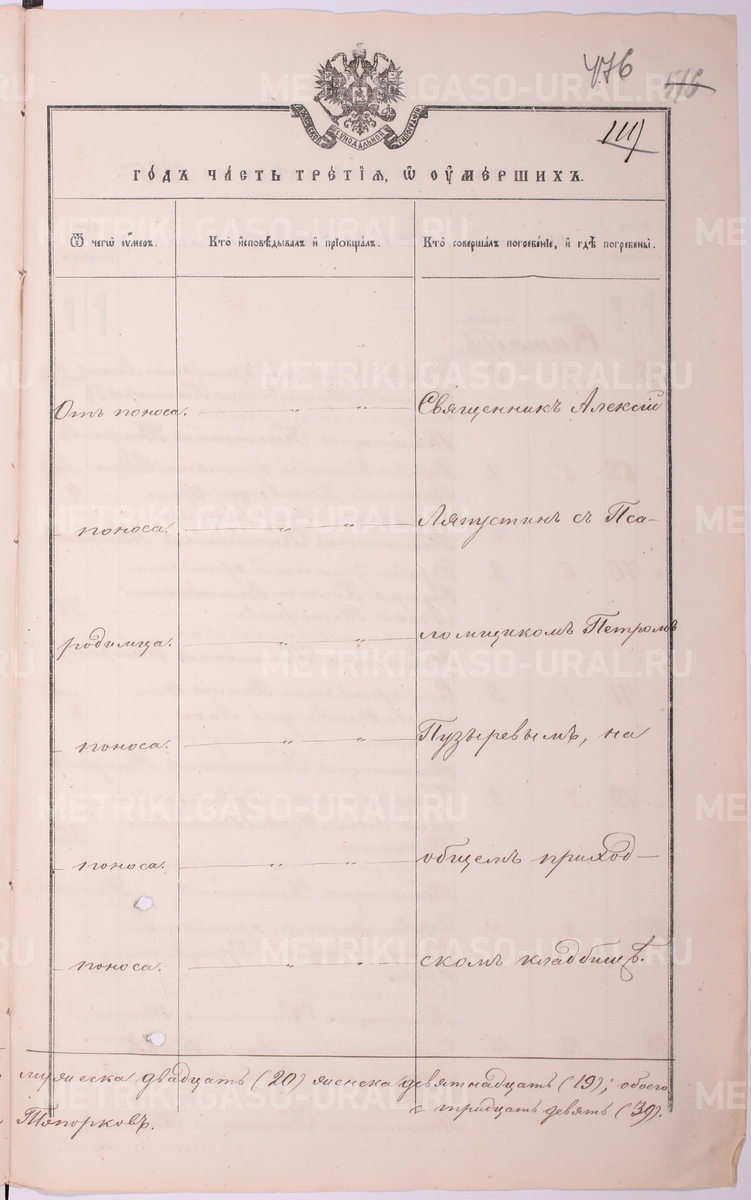 476 516
111
МОСКОВСКОЙ СѴНОДАЛЬНОЙ ТИПОГРАФІИ
ГО́ДЪ ЧА́СТЬ ТРЕ́ТІѦ, Ѡ ОУ҆МЕ́РШИХЪ.
Ѿ чегѡ̀ оу҆́меръ.
Кто̀ и҆сповѣ́дывалъ и҆ прїѡбща́лъ.
Кто̀ соверша́лъ погребе́нїе, и҆ гдѣ̀ погребены̀.
Отъ поноса. — „ — „ — Священникъ Алексій
— поноса. — „ — „ — Ляпустинъ съ Пса-
родимца. — „ — „ — ломщикомъ Петромъ
— поноса. — „ — „ — Пузыревымъ, на
— поноса. — „ — „ — общемъ приход-
— поноса. — „ — „ — скомъ кладбищѣ.
мужеска двадцать (20) женска девятнадцать (19); обоего
тридцать девять (39).
Топорковъ.
METRIKI.GASO-URAL.RU